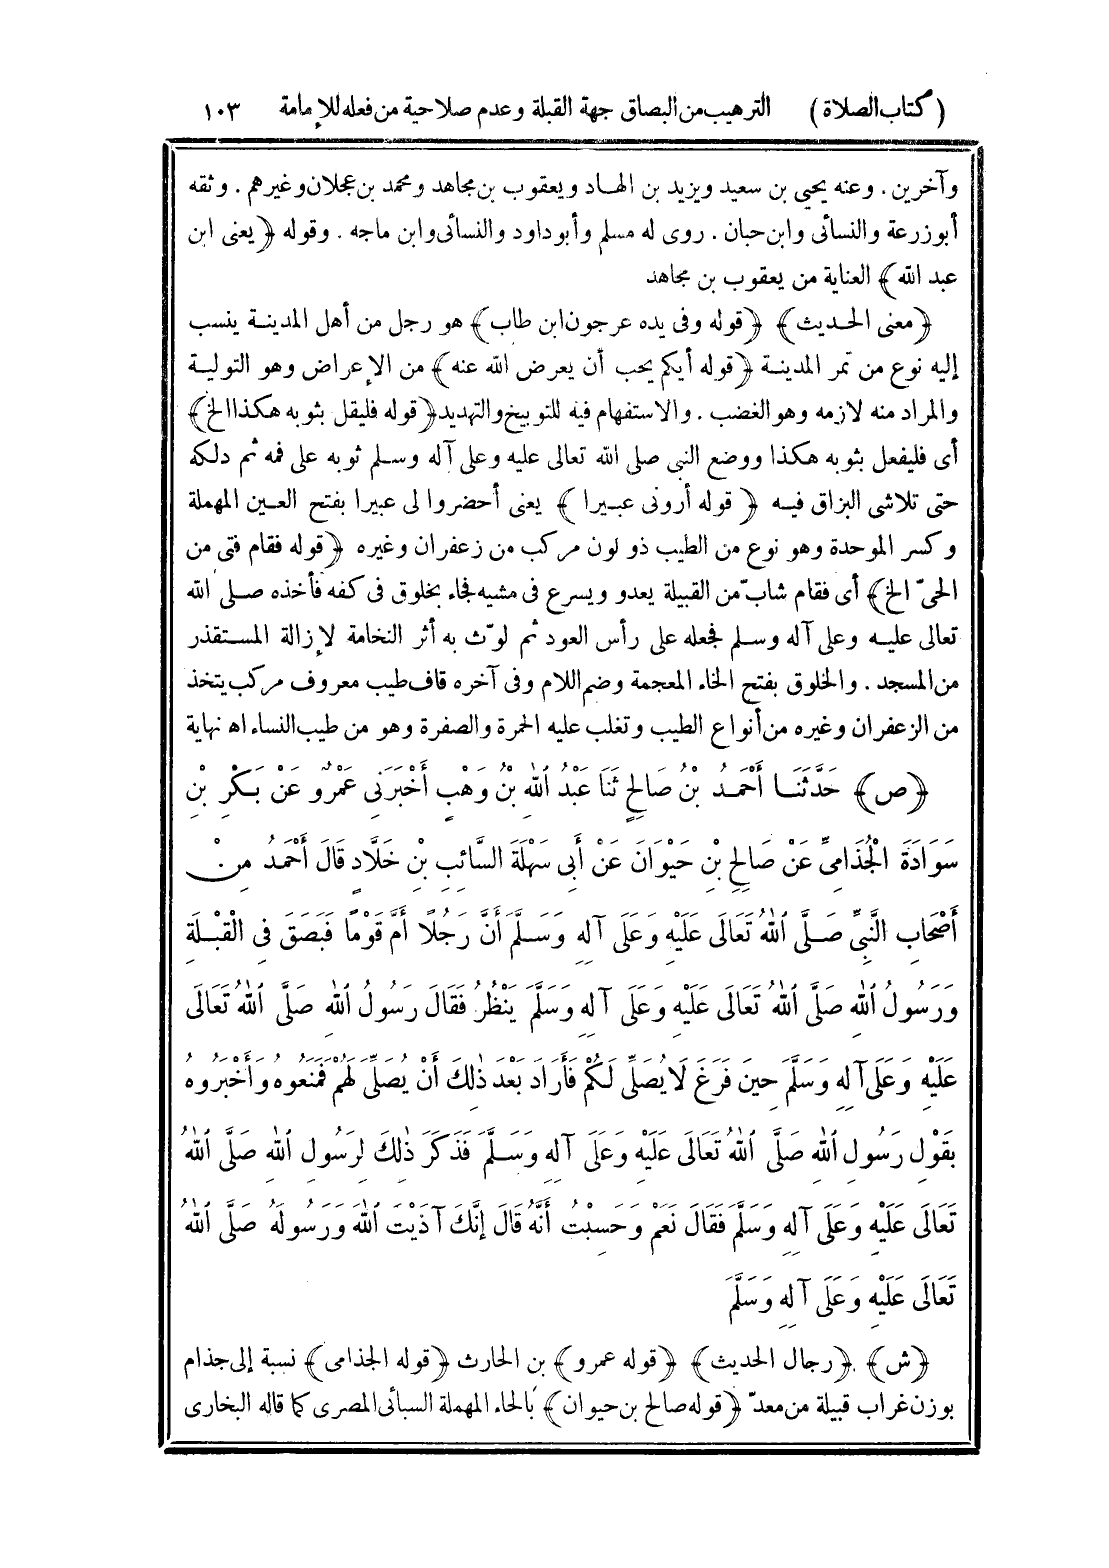 (كتاب الصلاة) الترهيب من البصاق جهة القبلة وعدم صلاحية من فعله للإمامة ١٠٣
وآخرين. وعنه يحيى بن سعيد ويزيد بن الهاد ويعقوب بن مجاهد ومحمد بن عجلان وغيرهم. وثقه
أبو زرعة والنسائى وابن حبان. روى له مسلم وأبو داود والنسائى وابن ماجه. وقوله ﴿يعنى ابن
عبد الله﴾ العناية من يعقوب بن مجاهد
﴿معنى الحديث﴾ ﴿قوله وفى يده عرجون ابن طاب﴾ هو رجل من أهل المدينة ينسب
إليه نوع من تمر المدينة ﴿قوله أيكم يحب أن يعرض الله عنه﴾ من الإعراض وهو التولية
والمراد منه لازمه وهو الغضب. والاستفهام فيه للتوبيخ والتهديد ﴿قوله فليقل بثوبه هكذا الخ﴾
أى فليفعل بثوبه هكذا ووضع النبى صلى الله تعالى عليه وعلى آله وسلم ثوبه على فمه ثم دلكه
حتى تلاشى البزاق فيه ﴿قوله أرونى عبيرا﴾ يعنى أحضروا لى عبيرا بفتح العين المهملة
وكسر الموحدة وهو نوع من الطيب ذو لون مركب من زعفران وغيره ﴿قوله فقام فتى من
الحىّ الخ﴾ أى فقام شابّ من القبيلة يعدو ويسرع فى مشيه فجاء بخلوق فى كفه فأخذه صلى الله
تعالى عليه وعلى آله وسلم فجعله على رأس العود ثم لوّث به أثر النخامة لإزالة المستقذر
من المسجد. والخلوق بفتح الخاء المعجمة وضم اللام وفى آخره قاف طيب معروف مركب يتخذ
من الزعفران وغيره من أنواع الطيب وتغلب عليه الحمرة والصفرة وهو من طيب النساء اه نهاية
﴿ص﴾ حَدَّثَنَا أَحْمَدُ بْنُ صَالِحٍ ثَنَا عَبْدُ اللهِ بْنُ وَهْبٍ أَخْبَرَنِى عَمْرٌو عَنْ بَكْرِ بْنِ
سَوَادَةَ الْجُذَامِىِّ عَنْ صَالِحِ بْنِ حَيْوَانَ عَنْ أَبِى سَهْلَةَ السَّائِبِ بْنِ خَلَّادٍ قَالَ أَحْمَدُ مِنْ
أَصْحَابِ النَّبِىِّ صَلَّى اللهُ تَعَالَى عَلَيْهِ وَعَلَى آلِهِ وَسَلَّمَ أَنَّ رَجُلًا أَمَّ قَوْمًا فَبَصَقَ فِى الْقِبْلَةِ
وَرَسُولُ اللهِ صَلَّى اللهُ تَعَالَى عَلَيْهِ وَعَلَى آلِهِ وَسَلَّمَ يَنْظُرُ فَقَالَ رَسُولُ اللهِ صَلَّى اللهُ تَعَالَى
عَلَيْهِ وَعَلَى آلِهِ وَسَلَّمَ حِينَ فَرَغَ لَا يُصَلِّى لَكُمْ فَأَرَادَ بَعْدَ ذٰلِكَ أَنْ يُصَلِّىَ لَهُمْ فَمَنَعُوهُ وَأَخْبَرُوهُ
بِقَوْلِ رَسُولِ اللهِ صَلَّى اللهُ تَعَالَى عَلَيْهِ وَعَلَى آلِهِ وَسَلَّمَ فَذَكَرَ ذٰلِكَ لِرَسُولِ اللهِ صَلَّى اللهُ
تَعَالَى عَلَيْهِ وَعَلَى آلِهِ وَسَلَّمَ فَقَالَ نَعَمْ وَحَسِبْتُ أَنَّهُ قَالَ إِنَّكَ آذَيْتَ اللهَ وَرَسُولَهُ صَلَّى اللهُ
تَعَالَى عَلَيْهِ وَعَلَى آلِهِ وَسَلَّمَ
﴿ش﴾ ﴿رجال الحديث﴾ ﴿قوله عمرو﴾ بن الحارث ﴿قوله الجذامى﴾ نسبة إلى جذام
بوزن غراب قبيلة من معدّ ﴿قوله صالح بن حيوان﴾ بالحاء المهملة السبائى المصرى كما قاله البخارى